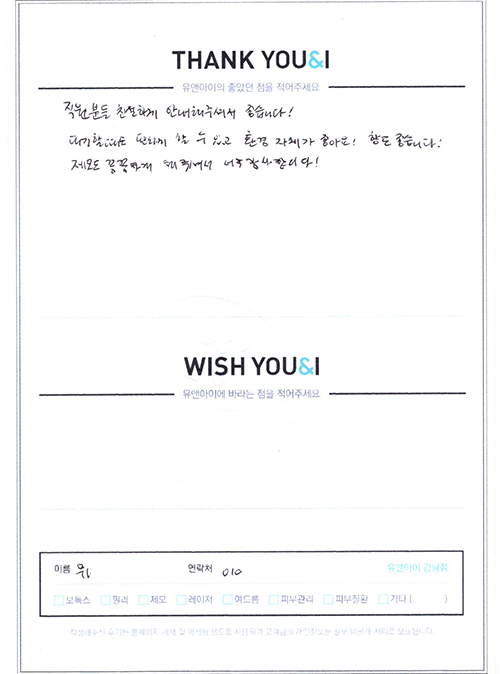 THANK YOU&I
유앤아이의 좋았던 점을 적어주세요
직원분들 친절하게 안내해주셔서 좋습니다!
대기할때도 편하게 할 수 있고 환경 자체가 좋아요! 향도 좋습니다!
제모도 꼼꼼하게 해주셔서 너무 감사합니다!
WISH YOU&I
유앤아이에 바라는 점을 적어주세요
이름 연락처 010 유앤아이 강남점
보톡스 필러 제모 레이저 여드름 피부관리 피부질환 기타 ( )